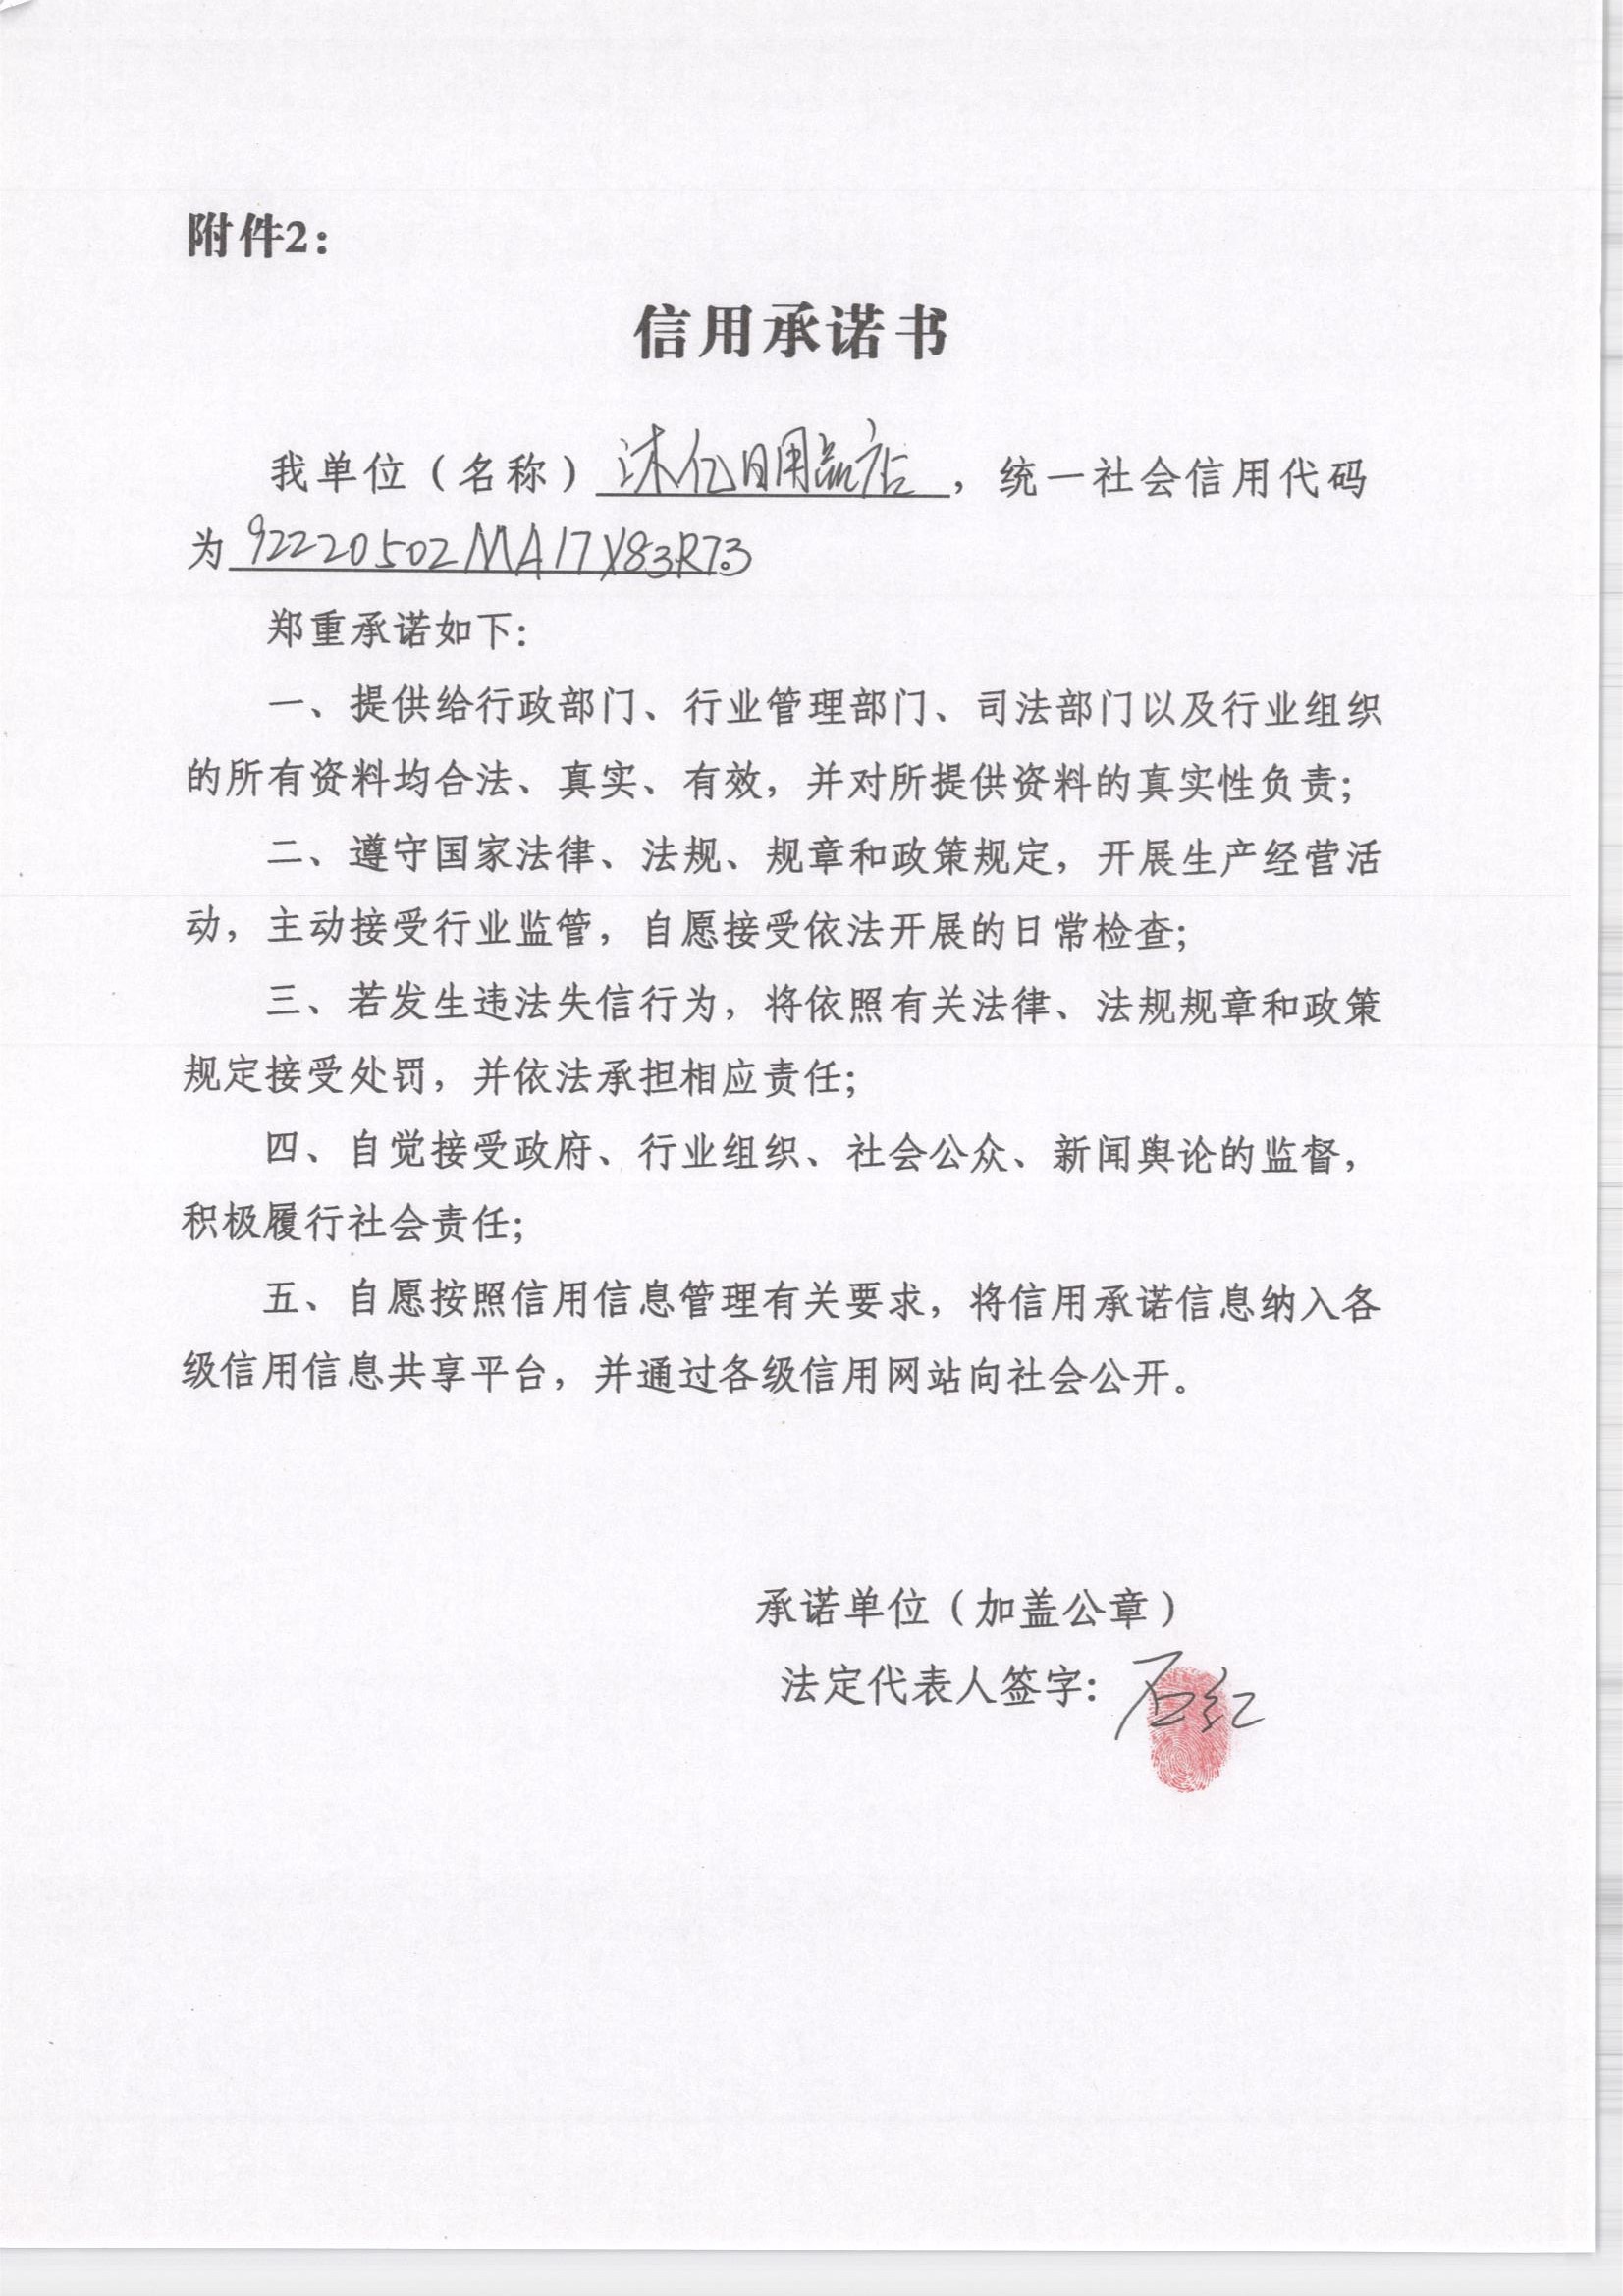 附件2：
信用承诺书
我单位（名称）沐亿日用品店，统一社会信用代码
为92220502MA17X83R73。
郑重承诺如下：
一、提供给行政部门、行业管理部门、司法部门以及行业组织
的所有资料均合法、真实、有效，并对所提供资料的真实性负责；
二、遵守国家法律、法规、规章和政策规定，开展生产经营活
动，主动接受行业监管，自愿接受依法开展的日常检查；
三、若发生违法失信行为，将依照有关法律、法规规章和政策
规定接受处罚，并依法承担相应责任；
四、自觉接受政府、行业组织、社会公众、新闻舆论的监督，
积极履行社会责任；
五、自愿按照信用信息管理有关要求，将信用承诺信息纳入各
级信用信息共享平台，并通过各级信用网站向社会公开。
承诺单位（加盖公章）
法定代表人签字：石红